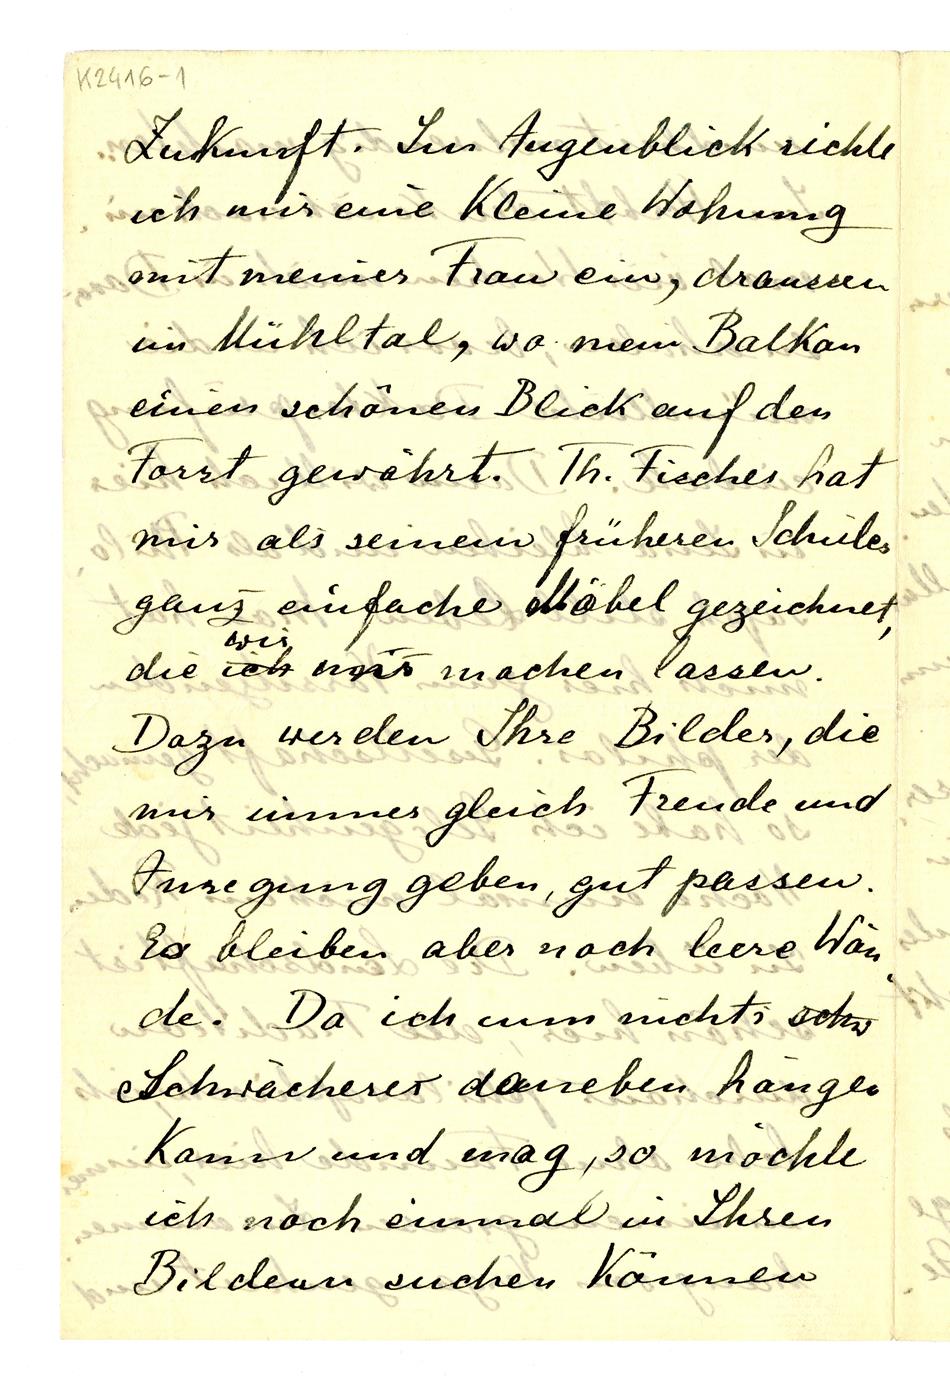 K2416-1
Zukunft. Im Augenblick richte
ich mir eine Kleine Wohnung
mit meiner Frau ein, draussen
im Mühltal, wo mein Balkon
einen schönen Blick auf den
Forst gewährt. Th. Fischer hat
mir als seinem früheren Schüler
ganz einfache Möbel gezeichnet,
wir
die ich uns machen lassen.
Dazu werden Ihre Bilder, die
mir immer gleich Freude und
Anregung geben, gut passen.
Es bleiben aber noch leere Wän-
de. Da ich nun nichts schw
Schwächeres daneben hängen
Kann und mag, so möchte
ich noch einmal in Ihren
Bildern suchen Können